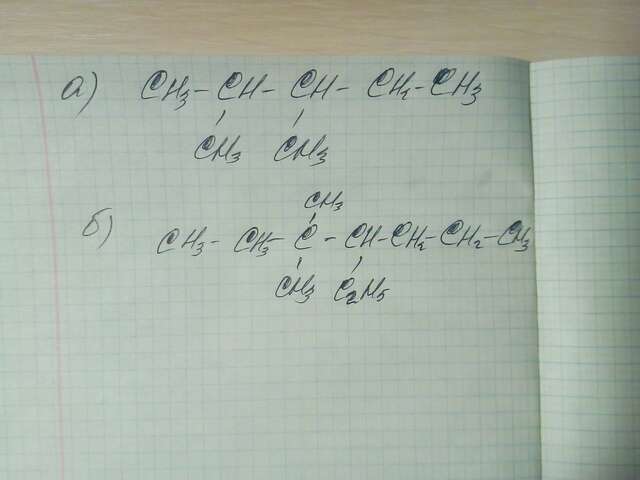 а) CH3 - CH - CH - CH2 - CH3
CH3 CH3
CH3
б) CH3 - CH3 - C - CH - CH2 - CH2 - CH3
CH3 C2H5